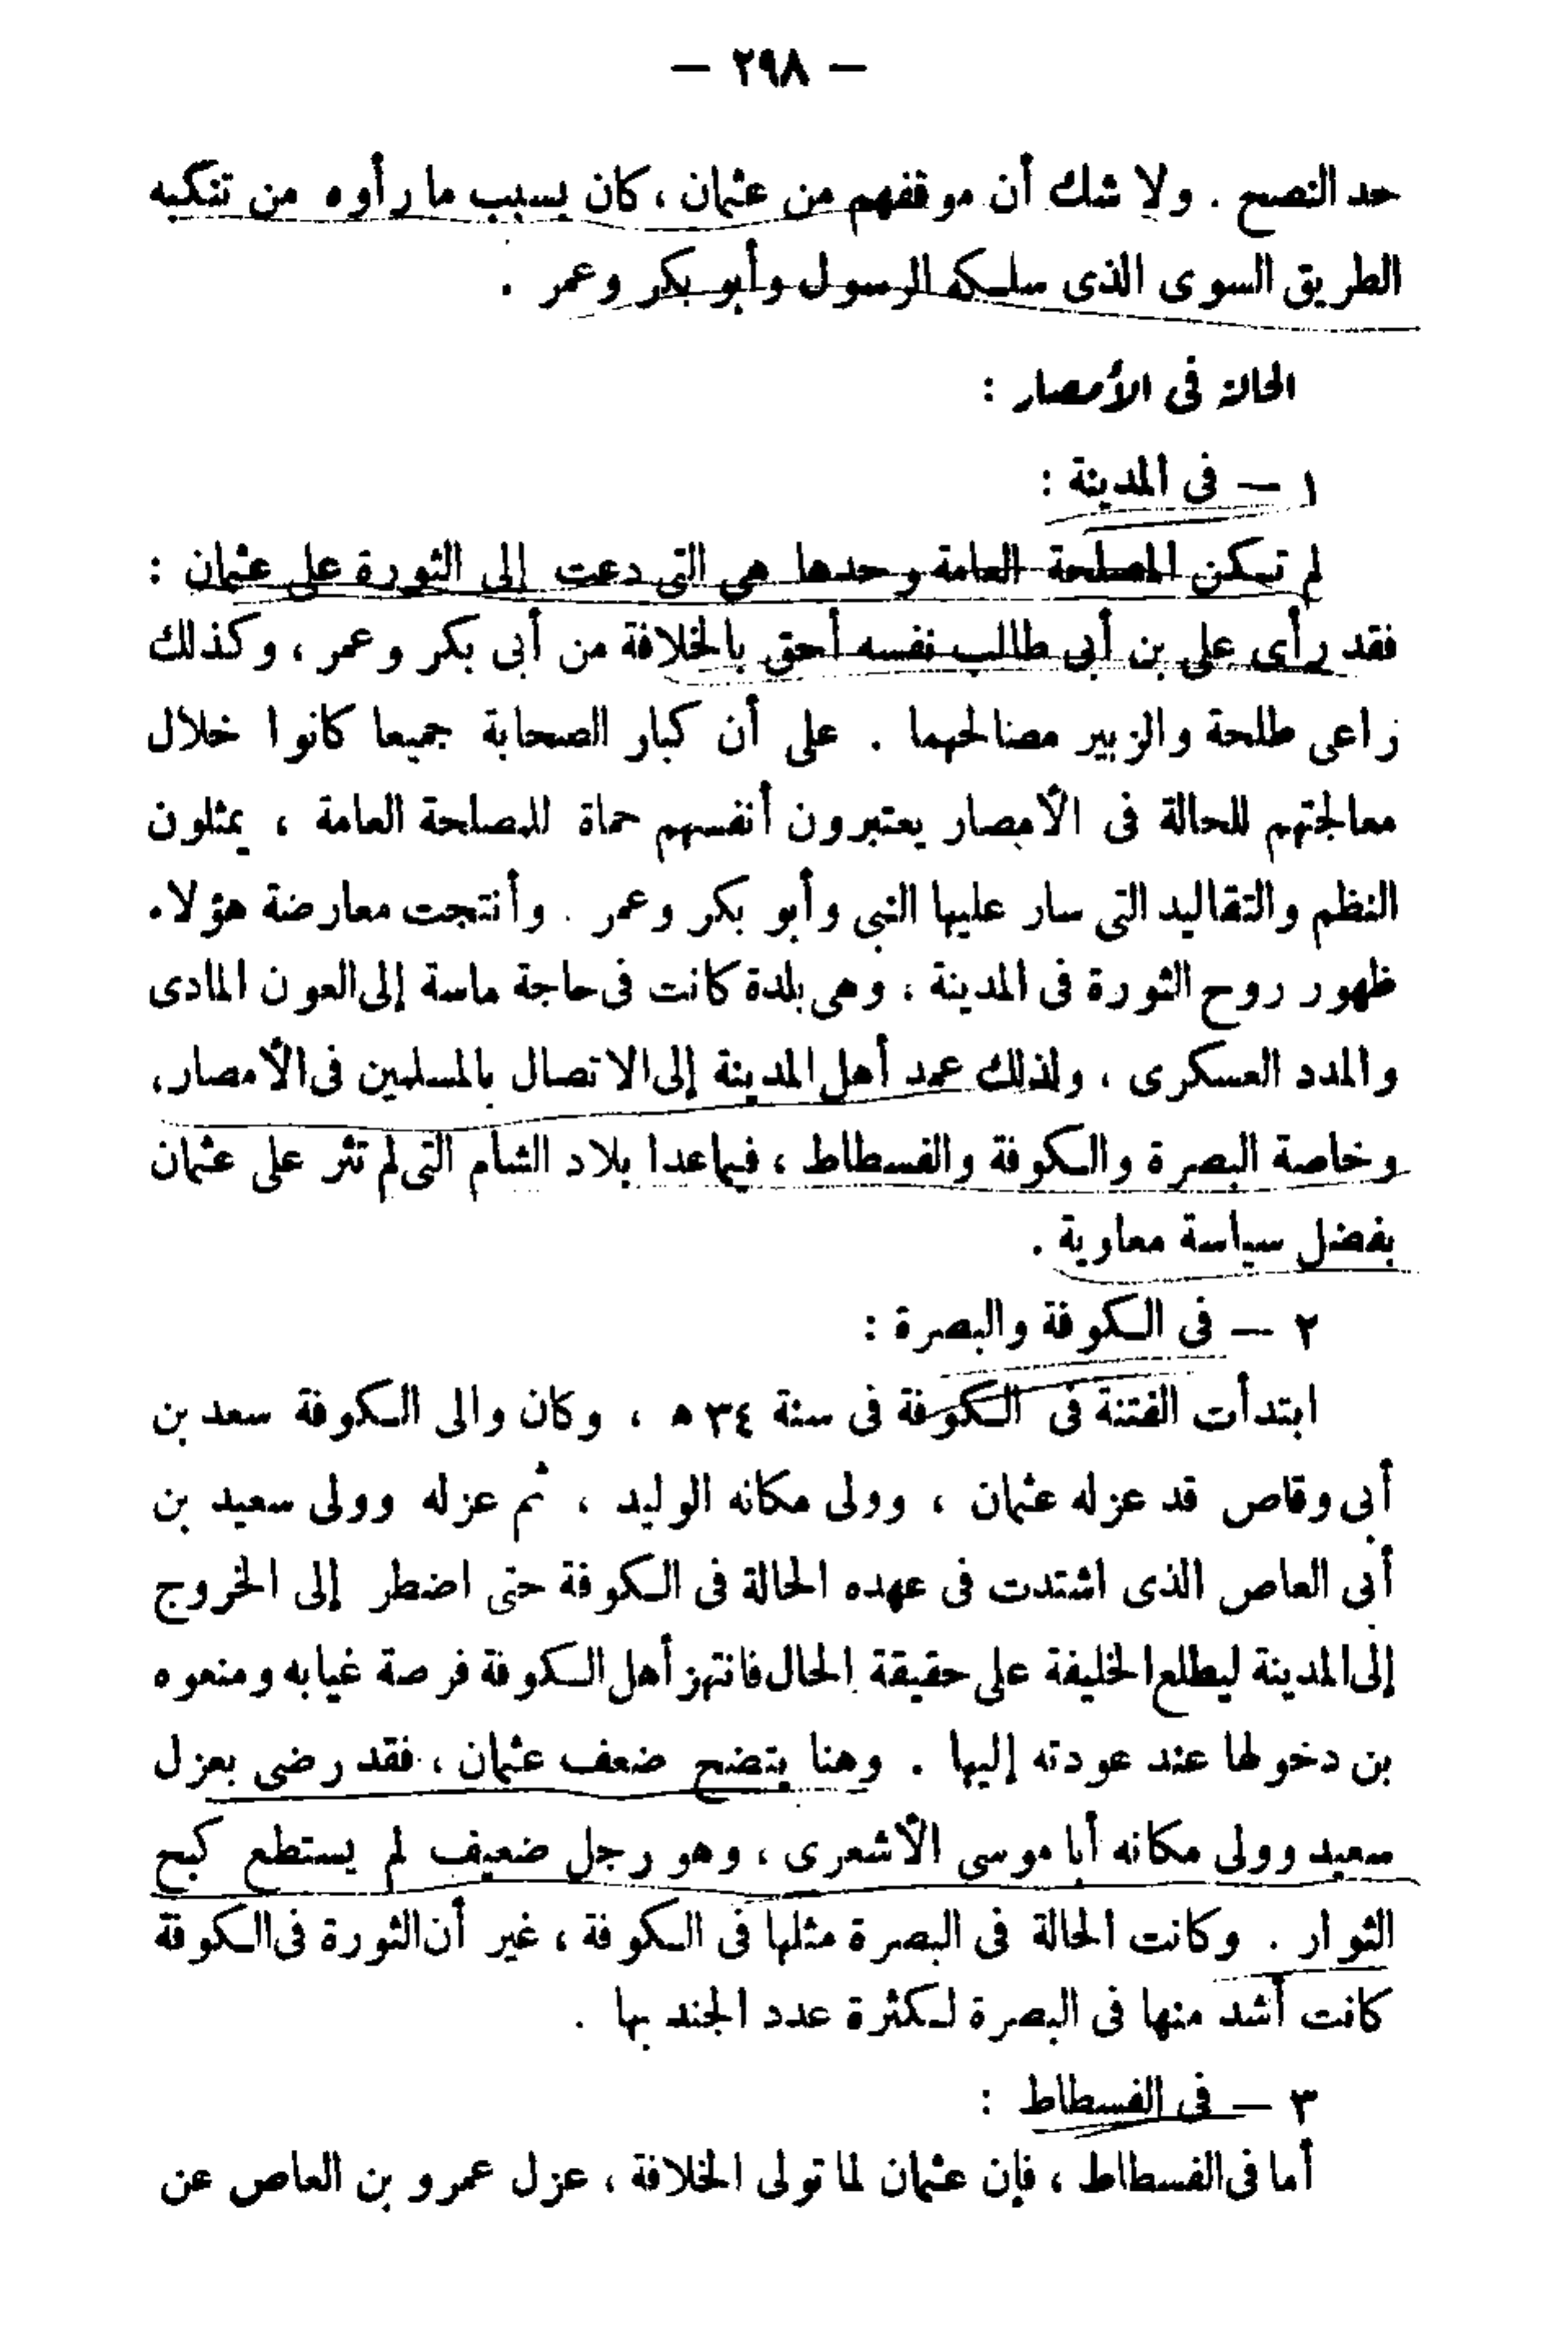 — ٢٩٨ —
حد النصح . ولا شك أن موقفهم من عثمان ، كان بسبب ما رأوه من تنكبه
الطريق السوى الذى سلكه الرسول وأبو بكر وعمر .
الحالة فى الأمصار :
١ — فى المدينة :
لم تكن المصلحة العامة وحدها هى التى دعت إلى الثورة على عثمان :
فقد رأى على بن أبى طالب نفسه أحق بالخلافة من أبى بكر وعمر ، وكذلك
راعى طلحة والزبير مصالحهما . على أن كبار الصحابة جميعا كانوا خلال
معالجتهم للحالة فى الأمصار يعتبرون أنفسهم حماة للمصلحة العامة ، يمثلون
النظم والتقاليد التى سار عليها النبى وأبو بكر وعمر . وأنتجت معارضة هؤلاء
ظهور روح الثورة فى المدينة ، وهى بلدة كانت فى حاجة ماسة إلى العون المادى
والمدد العسكرى ، ولذلك عمد أهل المدينة إلى الاتصال بالمسلمين فى الأمصار ،
وخاصة البصرة والكوفة والفسطاط ، فيما عدا بلاد الشام التى لم تثر على عثمان
بفضل سياسة معاوية .
٢ — فى الكوفة والبصرة :
ابتدأت الفتنة فى الكوفة فى سنة ٣٤ ه ، وكان والى الكوفة سعد بن
أبى وقاص قد عزله عثمان ، وولى مكانه الوليد ، ثم عزله وولى سعيد بن
أبى العاص الذى اشتدت فى عهده الحالة فى الكوفة حتى اضطر إلى الخروج
إلى المدينة ليطلع الخليفة على حقيقة الحال فانتهز أهل الكوفة فرصة غيابه ومنعوه
بن دخولها عند عودته إليها . وهنا يتضح ضعف عثمان ، فقد رضى بعزل
سعيد وولى مكانه أبا موسى الأشعرى ، وهو رجل ضعيف لم يستطع كبح
الثوار . وكانت الحالة فى البصرة مثلها فى الكوفة ، غير أن الثورة فى الكوفة
كانت أشد منها فى البصرة لكثرة عدد الجند بها .
٣ — فى الفسطاط :
أما فى الفسطاط ، فإن عثمان لما تولى الخلافة ، عزل عمرو بن العاص عن